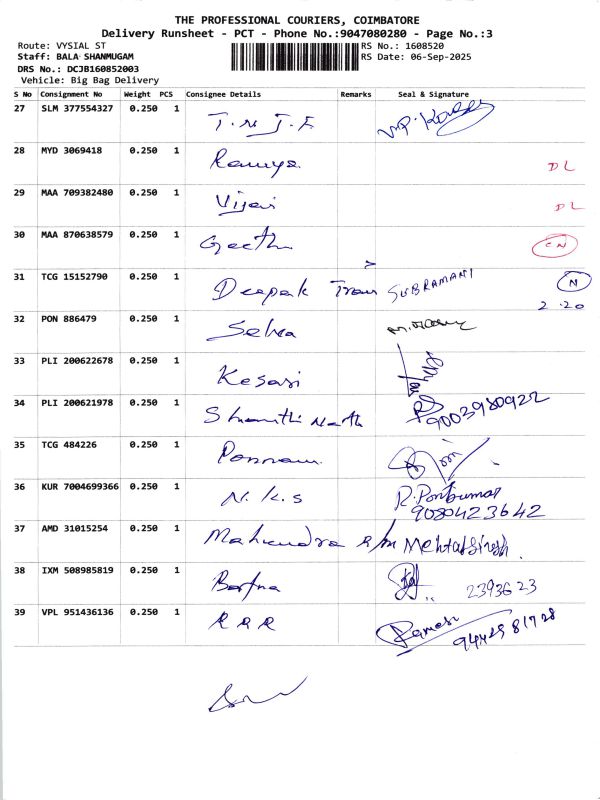 THE PROFESSIONAL COURIERS, COIMBATORE
Delivery Runsheet - PCT - Phone No.:9047080280 - Page No.:3
Route: VYSIAL ST RS No.: 1608520
Staff: BALA SHANMUGAM RS Date: 06-Sep-2025
DRS No.: DCJB160852003
Vehicle: Big Bag Delivery
S No Consignment No Weight PCS Consignee Details Remarks Seal & Signature
27 SLM 377554327 0.250 1
28 MYD 3069418 0.250 1 Ramya DL
29 MAA 709382480 0.250 1 DL
30 MAA 870638579 0.250 1 CN
31 TCG 15152790 0.250 1 Deepak SUBRAMANI N
2.20
32 PON 886479 0.250 1 Selva
33 PLI 200622678 0.250 1 Kesari
34 PLI 200621978 0.250 1 9003980922
35 TCG 484226 0.250 1
36 KUR 7004699366 0.250 1 N.K.S
9080423642
37 AMD 31015254 0.250 1 Mahendra
38 IXM 508985819 0.250 1 2393623
39 VPL 951436136 0.250 1 R R R Ramesh